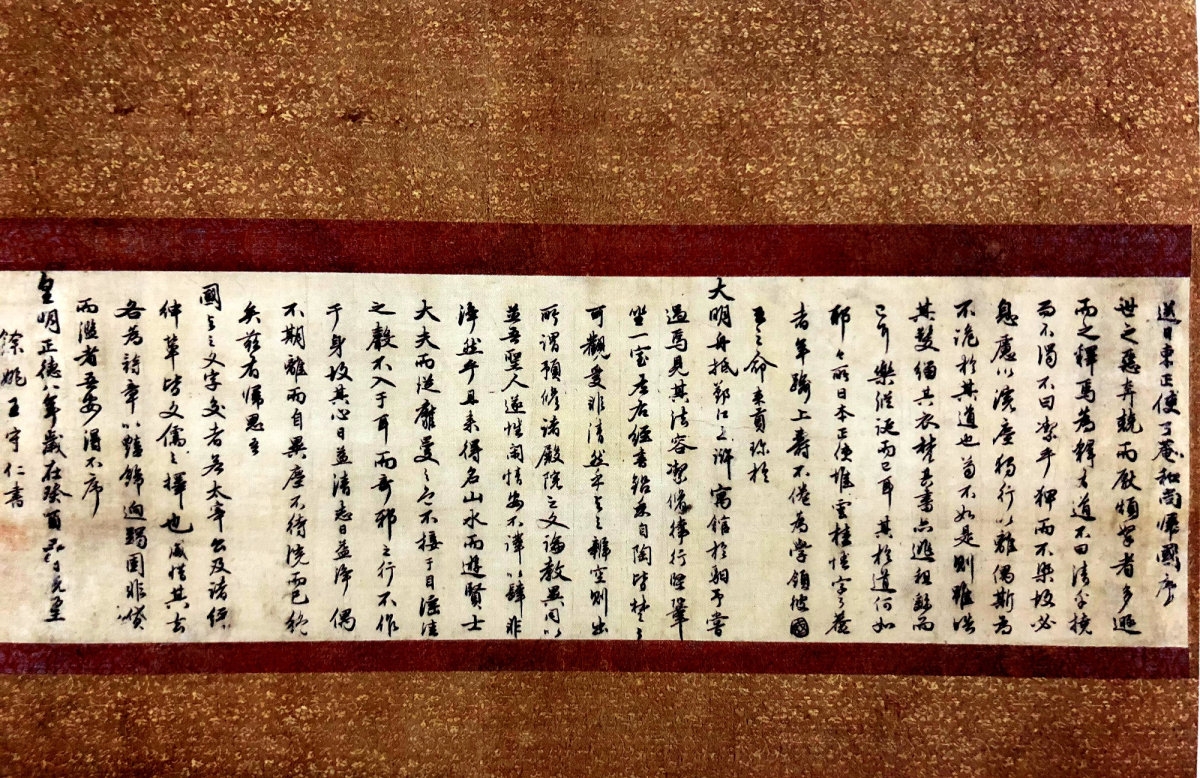 送日東正使了庵和尚歸國序
世之惡奔競而厭煩拏者多遁
而之釋焉為釋有道不曰清乎撓
而不濁不曰潔乎狎而不染故必
息慮以浣塵獨行以離偶斯為
不詭於其道也苟不如是則雖皓
其髮緇其衣梵其書亦逃租繇而
已耳樂縱誕而已耳其於道何如
耶今有日本正使堆雲桂悟字了菴
者年踰上壽不倦為學領彼國
王之命來貢珍於
大明舟抵鄞江之滸寓館於駔予嘗
過焉見其法容潔脩律行堅鞏
坐一室左右經書鉛朱自陶皆楚楚
可觀愛非清然乎與之辨空則出
所謂預修諸殿院之文論教異同以
並吾聖人遂性閑情安不譁以肆非
淨然乎且來得名山水而遊賢士
大夫而從靡曼之色不接于目淫哇
之聲不入于耳而奇邪之行不作
于身故其心日益清志日益淨偶
不期離而自異塵不待浣而已絕
矣茲有歸思吾
國與之文字交者若太宰公及諸縉
紳輩皆文儒之擇也咸惜其去
各為詩章以艷飾迥躅固非貸
而濫者吾安得不序
皇明正德八年歲在癸酉五月既望
餘姚王守仁書